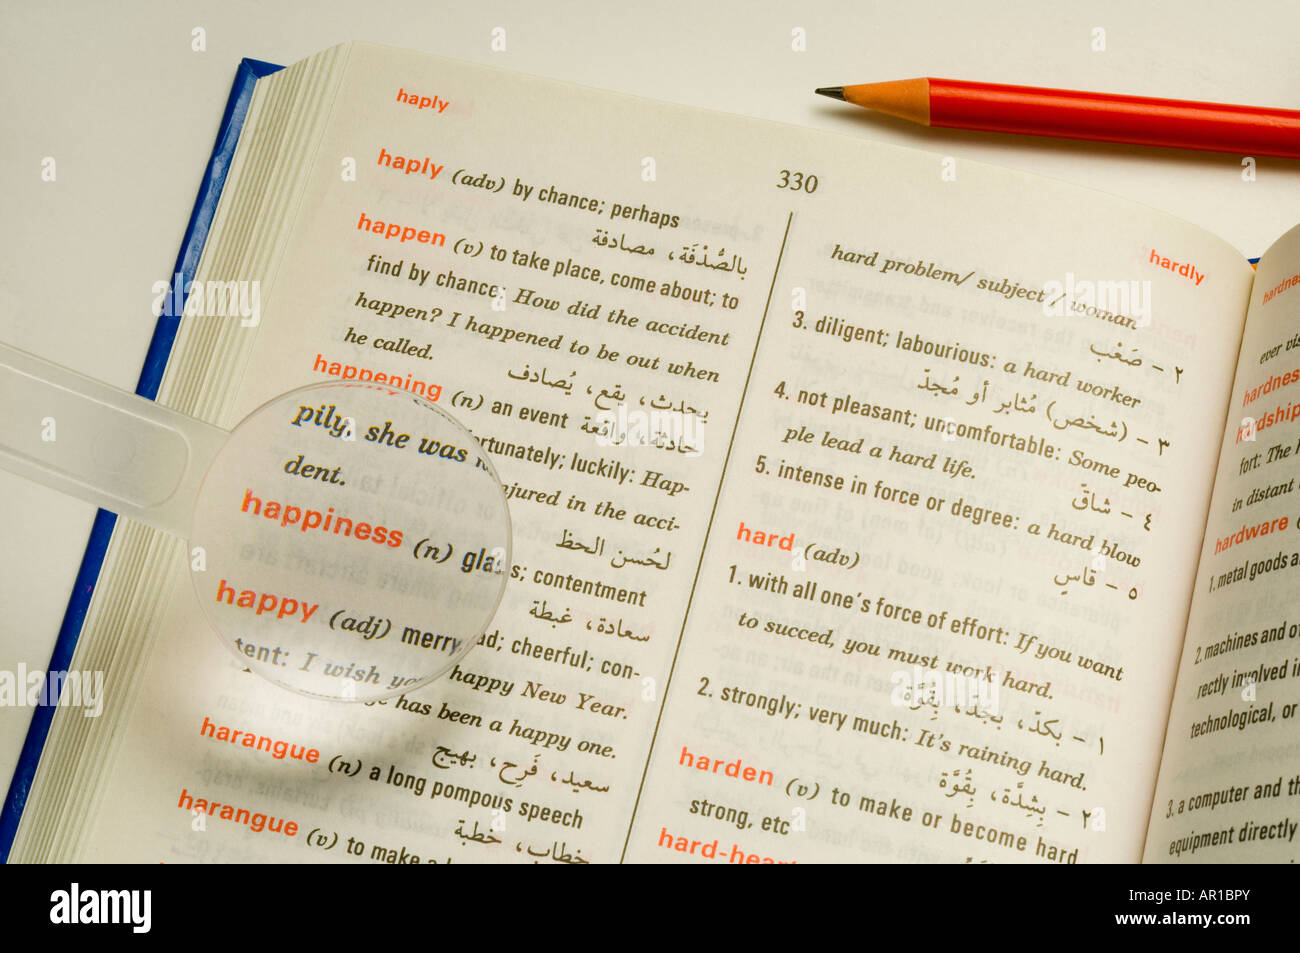 haply
330
hardly
haply (adv) by chance; perhaps
بالصُّدْفَة، مصادفة
happen (v) to take place, come about; to
find by chance: How did the accident
happen? I happened to be out when
he called.
يحدث، يقع، يُصادف
happening (n) an event حادثة، واقعة
fortunately; luckily: Hap-
pily, she was
injured in the acci-
dent.
لحُسن الحظ
happiness (n) gla s; contentment
سعادة، غبطة
happy (adj) merry, ad; cheerful; con-
tent: I wish yo happy New Year.
ge has been a happy one.
سعيد، فَرِح، بهيج
harangue (n) a long pompous speech
خطاب، خطبة
harangue (v) to make a
hard problem / subject / woman
٢ - صَعْب
3. diligent; labourious: a hard worker
٣ - (شخص) مُثابر أو مُجِدّ
4. not pleasant; uncomfortable: Some peo-
ple lead a hard life.
٤ - شاقّ
5. intense in force or degree: a hard blow
٥ - قاسٍ
hard (adv)
1. with all one's force of effort: If you want
to succed, you must work hard.
١ - بكدّ، بجَدّ، بِقُوَّة
2. strongly; very much: It's raining hard.
٢ - بِشِدَّة، بِقُوَّة
harden (v) to make or become hard
strong, etc
hard-heart
hardnes
ever vis
hardnes
hardship
fort: The h
in distant
hardware (
1. metal goods a
2. machines and ot
rectly involved in
technological, or
3. a computer and th
equipment directly
alamy
a
Image ID: AR1BPY
www.alamy.com